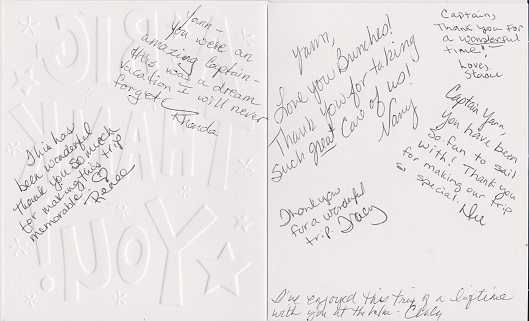 Yann -
You were an
amazing Captain -
this was a dream
vacation I will never
forget!
Rhonda
This has
been wonderful
Thank you so much
for making this trip
memorable ♡
Renee
Yann,
Love you Bunches!
Thank you for taking
such great care of us!
Nancy
Thank you
for a wonderful
trip. Tracy
Captain,
Thank you for
a wonderful
time!
Love,
Captain Yann,
You have been
so fun to sail
with! Thank you
for making our trip
so special.
I've enjoyed this trip of a lifetime
with you at the helm -
A BIG
THANK
YOU!